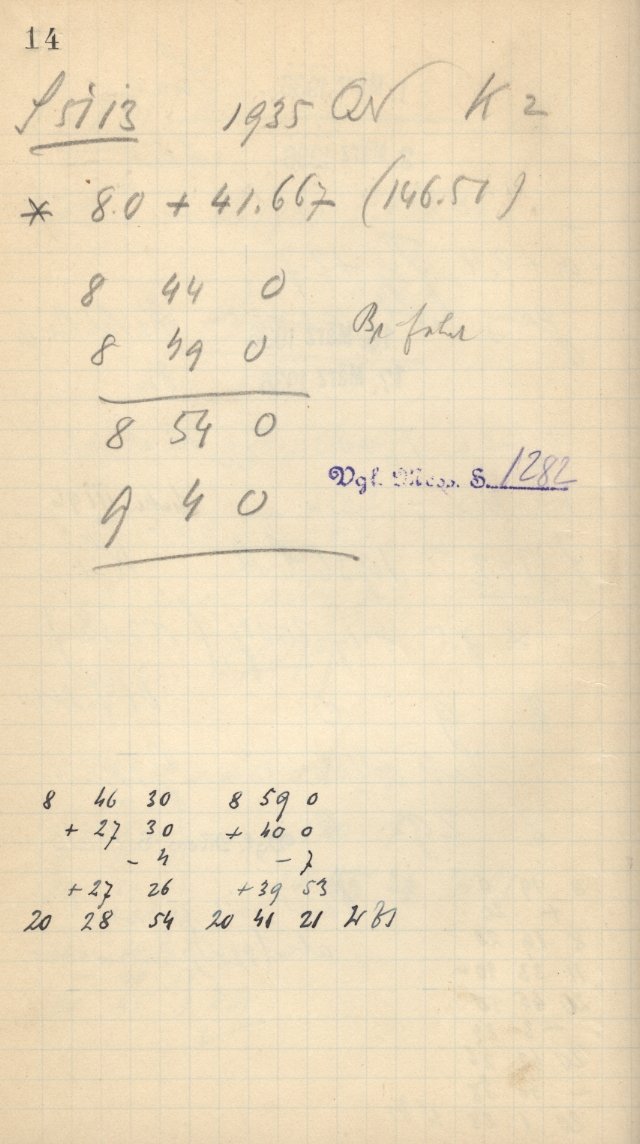 14
1935 QN K 2
* 8.0 + 41.667 (146.51)
8 44 0
8 49 0
8 54 0
9 4 0
Vgl. Mess. S. 1282
8 46 30 8 59 0
+ 27 30 + 40 0
- 4 - 7
+ 27 26 + 39 53
20 28 54 20 41 21